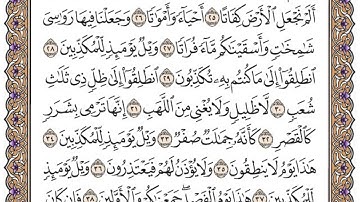 أَلَمْ نَجْعَلِ ٱلْأَرْضَ كِفَاتًا ٢٥ أَحْيَآءً وَأَمْوَٰتًا ٢٦ وَجَعَلْنَا فِيهَا رَوَٰسِىَ
شَٰمِخَٰتٍ وَأَسْقَيْنَٰكُم مَّآءً فُرَاتًا ٢٧ وَيْلٌ يَوْمَئِذٍ لِّلْمُكَذِّبِينَ ٢٨
ٱنطَلِقُوٓا۟ إِلَىٰ مَا كُنتُم بِهِۦ تُكَذِّبُونَ ٢٩ ٱنطَلِقُوٓا۟ إِلَىٰ ظِلٍّ ذِى ثَلَٰثِ
شُعَبٍ ٣٠ لَّا ظَلِيلٍ وَلَا يُغْنِى مِنَ ٱللَّهَبِ ٣١ إِنَّهَا تَرْمِى بِشَرَرٍ
كَٱلْقَصْرِ ٣٢ كَأَنَّهُۥ جِمَٰلَتٌ صُفْرٌ ٣٣ وَيْلٌ يَوْمَئِذٍ لِّلْمُكَذِّبِينَ ٣٤
هَٰذَا يَوْمُ لَا يَنطِقُونَ ٣٥ وَلَا يُؤْذَنُ لَهُمْ فَيَعْتَذِرُونَ ٣٦ وَيْلٌ يَوْمَئِذٍ
لِّلْمُكَذِّبِينَ ٣٧ هَٰذَا يَوْمُ ٱلْفَصْلِ جَمَعْنَٰكُمْ وَٱلْأَوَّلِينَ ٣٨ فَإِن كَانَ